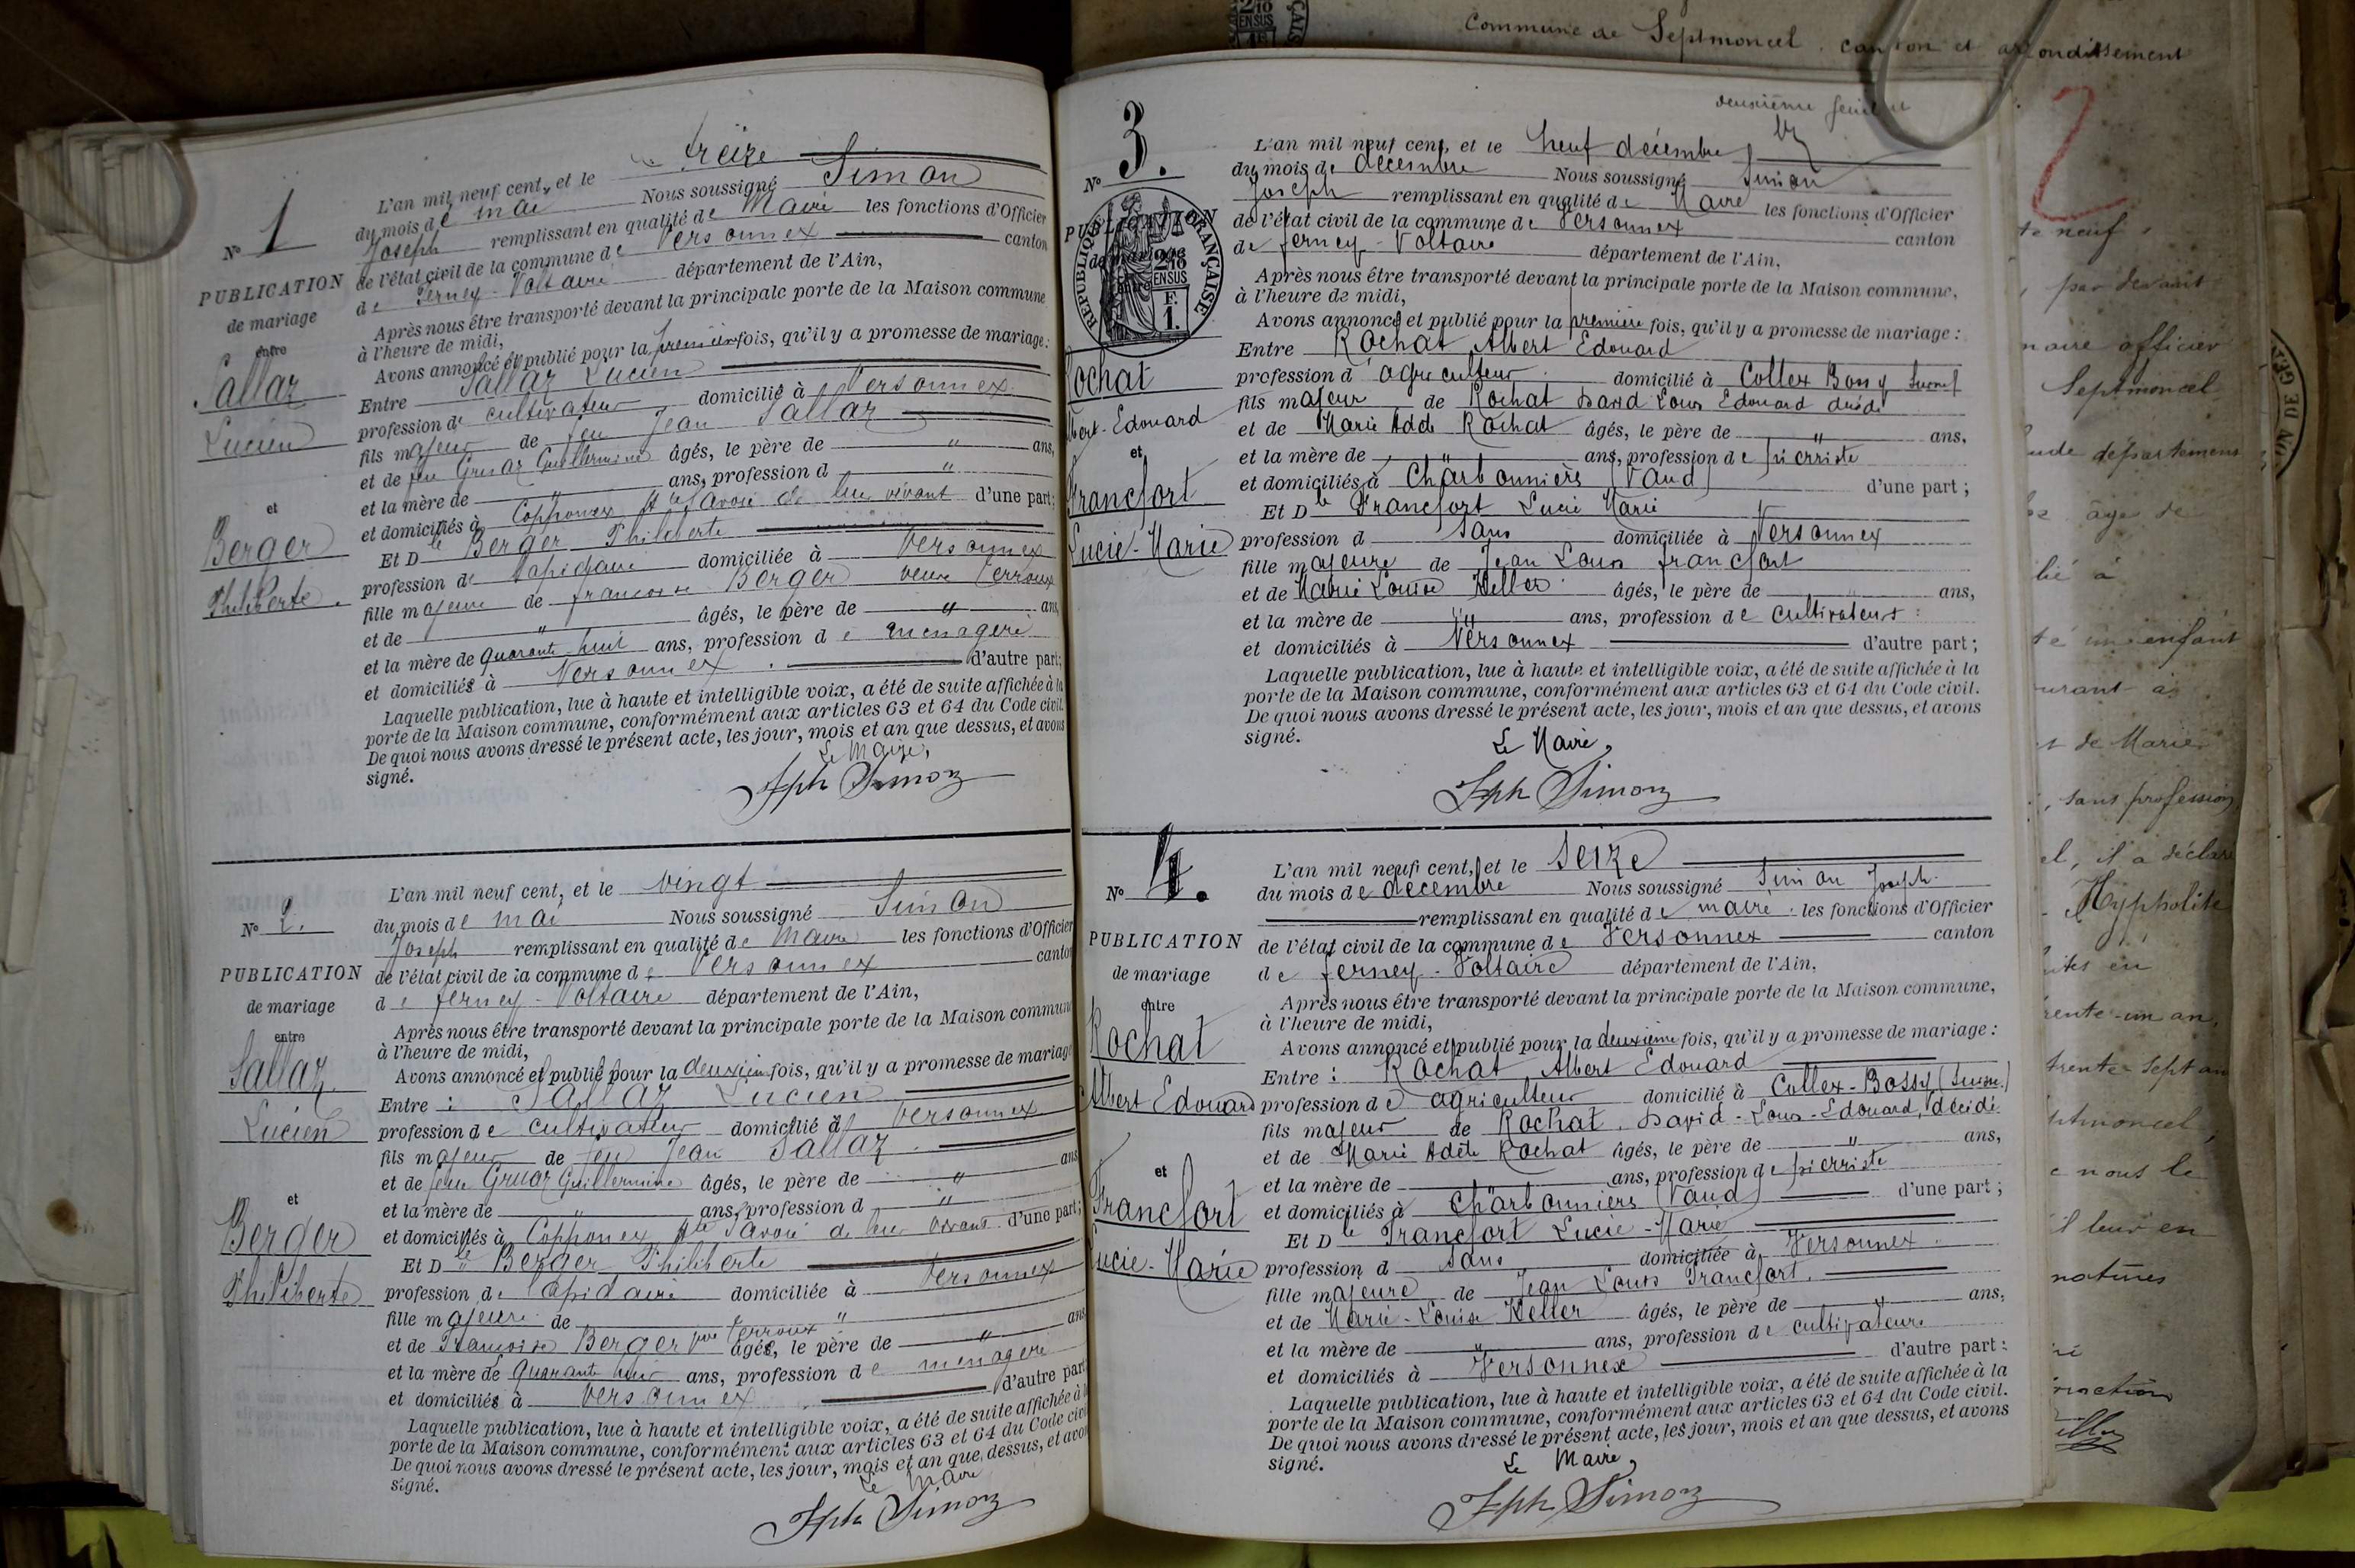 Commune de Septmoncel. canton et arrondissement
N° 1
PUBLICATION
de mariage
entre
Sallaz
Lucien
et
Berger
Philiberte.
L'an mil neuf cent, et le treize
du mois de mai Nous soussigné Simon
Joseph remplissant en qualité de Maire les fonctions d'Officier
de l'état civil de la commune de Versonnex canton
de Ferney-Voltaire département de l'Ain,
Après nous être transporté devant la principale porte de la Maison commune
à l'heure de midi,
Avons annoncé et publié pour la première fois, qu'il y a promesse de mariage:
Entre Sallaz Lucien
profession de cultivateur domicilié à Versonnex
fils majeur de feu Jean Sallaz
et de feu Gruaz Guillermine âgés, le père de " ans,
et la mère de " ans, profession d "
et domiciliés à Copponex Hte Savoie de leur vivant d'une part;
Et D lle Berger Philiberte
profession de lapidaire domiciliée à Versonnex
fille majeure de francoise Berger veuve Perroux
et de " âgés, le père de " ans
et la mère de quarante huit ans, profession de ménagère
et domiciliés à Versonnex d'autre part;
Laquelle publication, lue à haute et intelligible voix, a été de suite affichée à la
porte de la Maison commune, conformément aux articles 63 et 64 du Code civil.
De quoi nous avons dressé le présent acte, les jour, mois et an que dessus, et avons
signé.
Le Maire,
Jph Simon
N° 2.
PUBLICATION
de mariage
entre
Sallaz
Lucien
et
Berger
Philiberte
L'an mil neuf cent, et le vingt
du mois de mai Nous soussigné Simon
Joseph remplissant en qualité de Maire les fonctions d'Officier
de l'état civil de la commune de Versonnex canton
de ferney-Voltaire département de l'Ain,
Après nous être transporté devant la principale porte de la Maison commun
à l'heure de midi,
Avons annoncé et publié pour la deuxième fois, qu'il y a promesse de mariage
Entre : Sallaz Lucien
profession de cultivateur domicilié à Versonnex
fils majeur de feu Jean Sallaz
et de feue Gruaz Guillermine âgés, le père de " ans
et la mère de " ans, profession d "
et domiciliés à Copponex Hte Savoie de leur vivant d'une part;
Et D lle Berger Philiberte
profession de lapidaire domiciliée à Versonnex
fille majeure de "
et de Françoise Berger vve Perroux âgés, le père de " ans
et la mère de quarante huit ans, profession de ménagère
et domiciliés à Versonnex d'autre part
Laquelle publication, lue à haute et intelligible voix, a été de suite affichée à l
porte de la Maison commune, conformément aux articles 63 et 64 du Code civil
De quoi nous avons dressé le présent acte, les jour, mois et an que dessus, et avon
signé.
Le Maire
Jph Simon
deuxième feuillet
N° 3.
PUBLICATION
de mariage
entre
RÉPUBLIQUE FRANÇAISE
2/10 EN SUS
F. 1.
Rochat
Albert-Edouard
et
Francfort
Lucie-Marie
L'an mil neuf cent, et le neuf décembre
du mois de décembre Nous soussigné Simon
Joseph remplissant en qualité de Maire les fonctions d'Officier
de l'état civil de la commune de Versonnex canton
de ferney-Voltaire département de l'Ain,
Après nous être transporté devant la principale porte de la Maison commune,
à l'heure de midi,
Avons annoncé et publié pour la première fois, qu'il y a promesse de mariage :
Entre Rochat Albert Edouard
profession d'agriculteur domicilié à Collex Bossy Suisse
fils majeur de Rochat David Louis Edouard
et de Marie Adèle Rochat âgés, le père de " ans,
et la mère de " ans, profession de pierriste
et domiciliés à Charbonnières (Vaud) d'une part ;
Et D lle Francfort Lucie Marie
profession d sans domiciliée à Versonnex
fille majeure de Jean Louis francfort
et de Marie Louise Keller âgés, le père de " ans,
et la mère de " ans, profession de cultivateurs
et domiciliés à Versonnex d'autre part ;
Laquelle publication, lue à haute et intelligible voix, a été de suite affichée à la
porte de la Maison commune, conformément aux articles 63 et 64 du Code civil.
De quoi nous avons dressé le présent acte, les jour, mois et an que dessus, et avons
signé.
Le Maire,
Jph Simon
N° 4.
PUBLICATION
de mariage
entre
Rochat
Albert Edouard
et
Francfort
Lucie-Marie
L'an mil neuf cent, et le seize
du mois de décembre Nous soussigné Simon Joseph.
remplissant en qualité de maire les fonctions d'Officier
de l'état civil de la commune de Versonnex canton
de ferney-Voltaire département de l'Ain,
Après nous être transporté devant la principale porte de la Maison commune,
à l'heure de midi,
Avons annoncé et publié pour la deuxième fois, qu'il y a promesse de mariage :
Entre : Rochat Albert Edouard
profession d'agriculteur domicilié à Collex-Bossy (Suisse.)
fils majeur de Rochat, David-Louis-Edouard, décédé
et de Marie Adèle Rochat âgés, le père de " ans,
et la mère de " ans, profession de pierriste
et domiciliés à Charbonnières (Vaud) d'une part ;
Et D lle Francfort Lucie-Marie
profession d sans domiciliée à Versonnex
fille majeure de Jean Louis Francfort.
et de Marie-Louise Keller âgés, le père de " ans,
et la mère de " ans, profession de cultivateurs
et domiciliés à Versonnex d'autre part :
Laquelle publication, lue à haute et intelligible voix, a été de suite affichée à la
porte de la Maison commune, conformément aux articles 63 et 64 du Code civil.
De quoi nous avons dressé le présent acte, les jour, mois et an que dessus, et avons
signé.
Le Maire,
Jph Simon
2
neuf,
par devant
maire officier
Septmoncel
département
âgé de
à
un enfant
de Marie
, sans profession
el, il a déclaré
Hypholite
rente-un an,
trente-sept an
ptmoncel,
e nous le
il leur en
natures